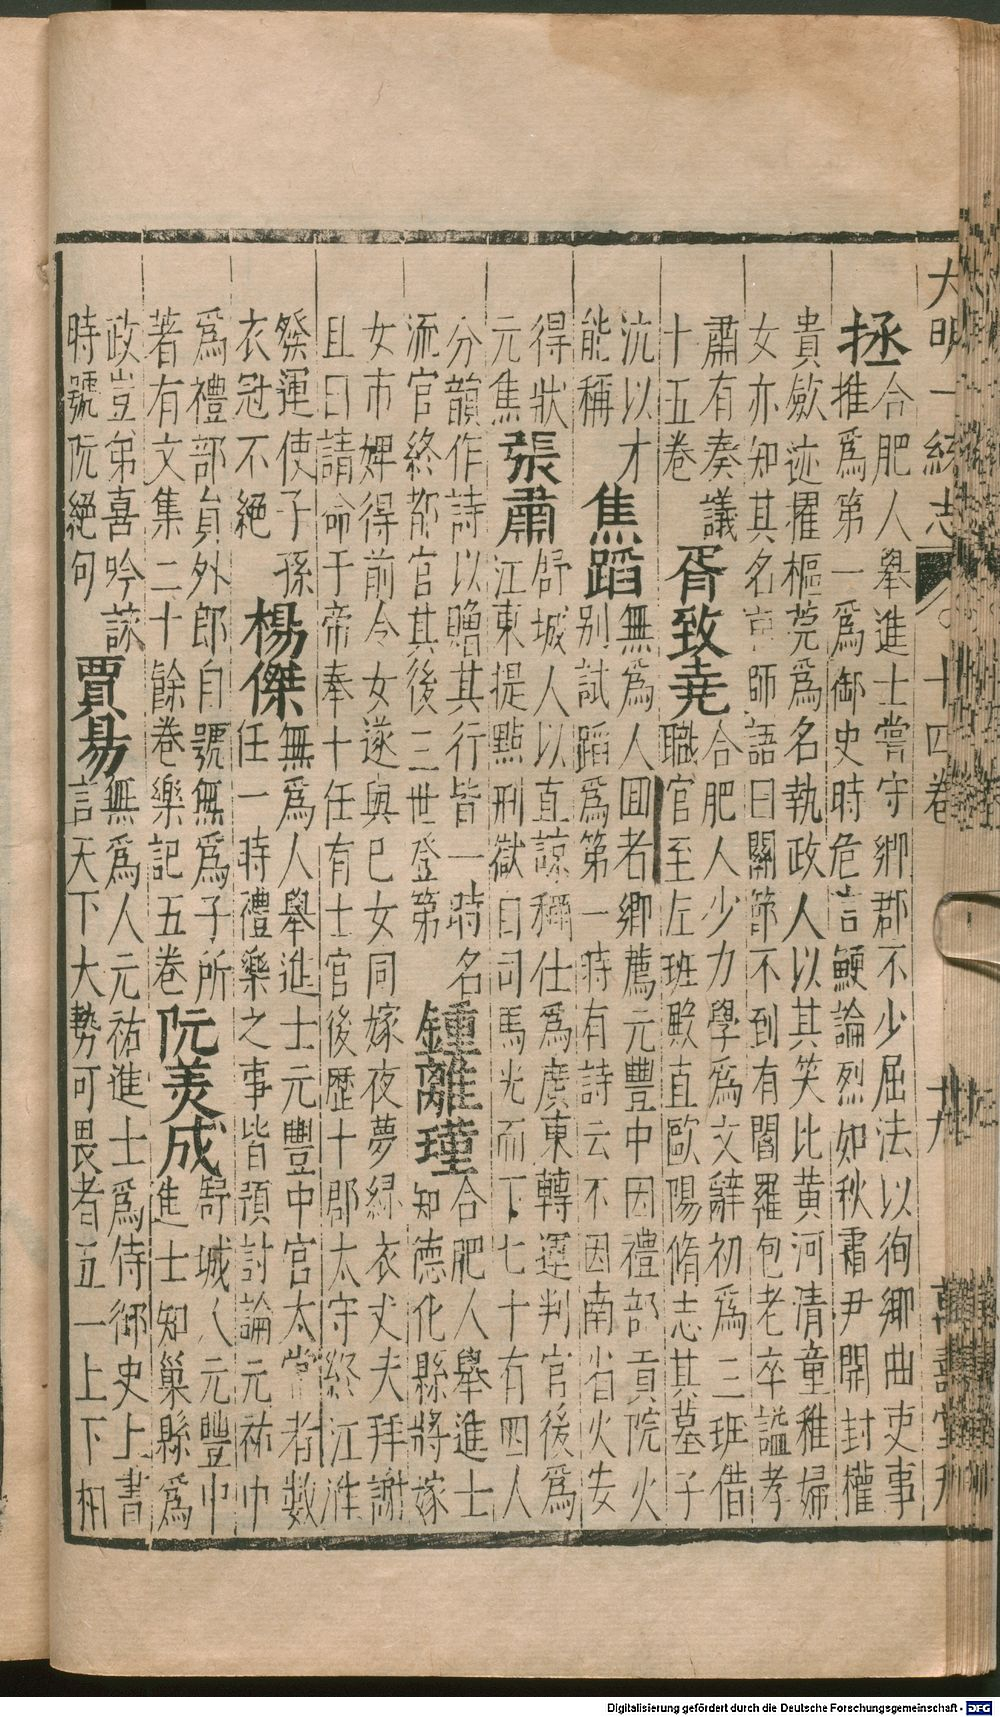 大明一統志 十四卷 喜堂刋
拯
合肥人舉進士嘗守鄉郡不少屈法以徇鄉曲吏事
推爲第一爲御史時危言鯁論烈如秋霜尹開封權
貴斂迹擢樞莞爲名執政人以其笑比黃河清童稚婦
女亦知其名京師語曰關節不到有閻羅包老卒謚孝
肅有奏議
十五卷
胥致堯
合肥人少力學爲文辭初爲三班借
職官至左班殿直歐陽脩志其墓子
沆以才
能稱
焦蹈
無爲人囬者鄉薦元豐中因禮部貢院火
別試蹈爲第一時有詩云不因南省火安
得狀
元焦
張肅
舒城人以直諒稱仕爲廣東轉運判官後爲
江東提點刑獄曰司馬光而下七十有四人
分韻作詩以贈其行皆一時名
流官終都官其後三世登第
鍾離瑾
合肥人舉進士
知德化縣將嫁
女市婢得前令女遂與已女同嫁夜夢綠衣丈夫拜謝
且曰請命于帝奉十任有士官後歷十郡太守終江淮
發運使子孫
衣冠不絕
楊傑
無爲人舉進士元豐中官太常者數
任一時禮樂之事皆預討論元祐中
爲禮部員外郎自號無爲子所
著有文集二十餘卷樂記五卷
阮美成
舒城人元豐中
進士知巢縣爲
政豈弟喜吟詠
時號阮絕句
賈易
無爲人元祐進士爲侍御史上書
言天下大勢可畏者五一上下相
Digitalisierung gefördert durch die Deutsche Forschungsgemeinschaft - DFG